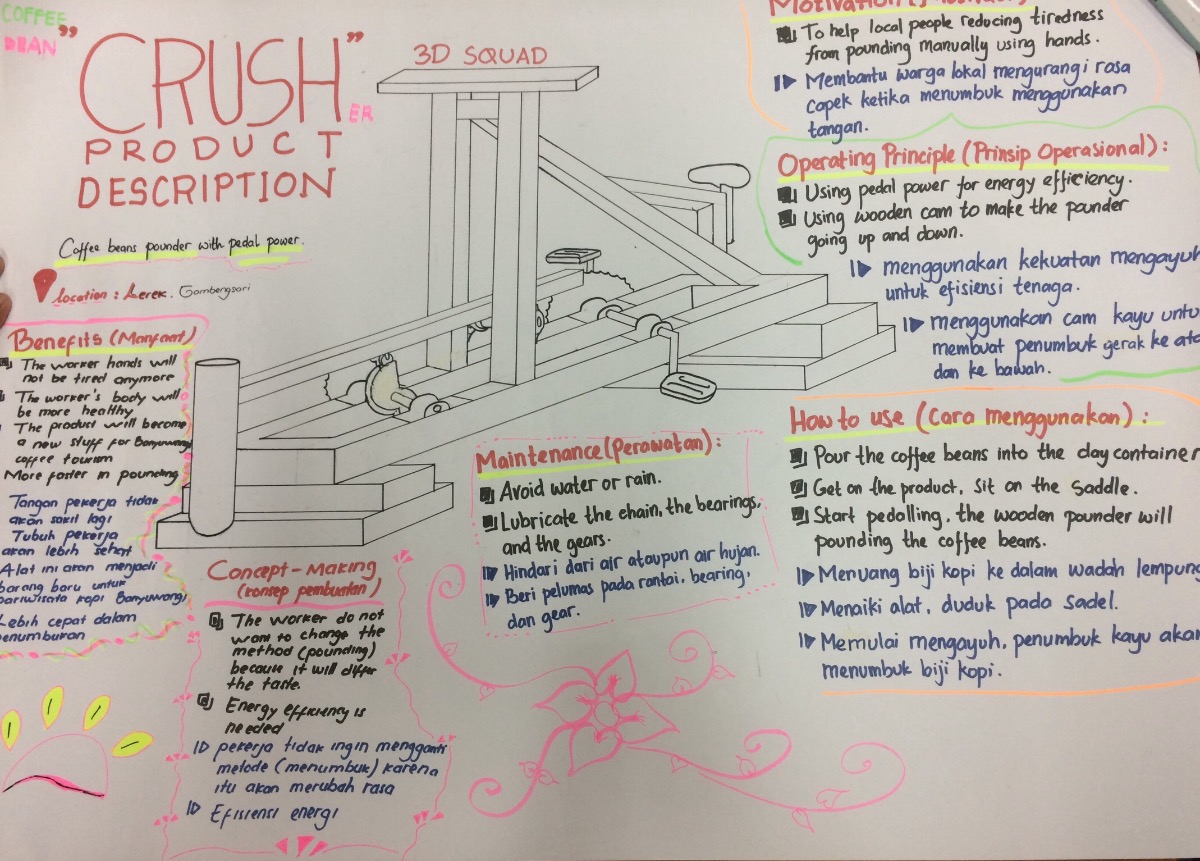 COFFEE
BEAN
"CRUSH"
ER
PRODUCT
DESCRIPTION
3D SQUAD
Coffee beans pounder with pedal power.
Location : Lerek. Gombengsari
Benefits (Manfaat)
The worker hands will
not be tired anymore
The worker's body will
be more healthy
The product will become
a new stuff for Banyuwangi
coffee tourism
More faster in pounding
Tangan pekerja tidak
akan sakit lagi
Tubuh pekerja
akan lebih sehat
Alat ini akan menjadi
barang baru untuk
pariwisata kopi Banyuwangi
Lebih cepat dalam
penumbukan
Concept-Making
(konsep pembuatan)
The worker do not
want to change the
method (pounding)
because it will differ
the taste.
Energy efficiency is
needed
pekerja tidak ingin mengganti
metode (menumbuk) karena
itu akan merubah rasa
Efisiensi energi
Maintenance (Perawatan) :
Avoid water or rain.
Lubricate the chain, the bearings,
and the gears.
Hindari dari air ataupun air hujan.
Beri pelumas pada rantai, bearing,
dan gear.
To help local people reducing tiredness
from pounding manually using hands.
Membantu warga lokal mengurangi rasa
capek ketika menumbuk menggunakan
tangan.
Operating Principle (Prinsip Operasional) :
Using pedal power for energy efficiency.
Using wooden cam to make the pounder
going up and down.
menggunakan kekuatan mengayuh
untuk efisiensi tenaga.
menggunakan cam kayu untu
membuat penumbuk gerak ke ata
dan ke bawah.
How to use (Cara menggunakan) :
Pour the coffee beans into the clay container
Get on the product, sit on the saddle.
Start pedalling, the wooden pounder will
pounding the coffee beans.
Menuang biji kopi ke dalam wadah lempung
Menaiki alat, duduk pada sadel.
Memulai mengayuh, penumbuk kayu akan
menumbuk biji kopi.